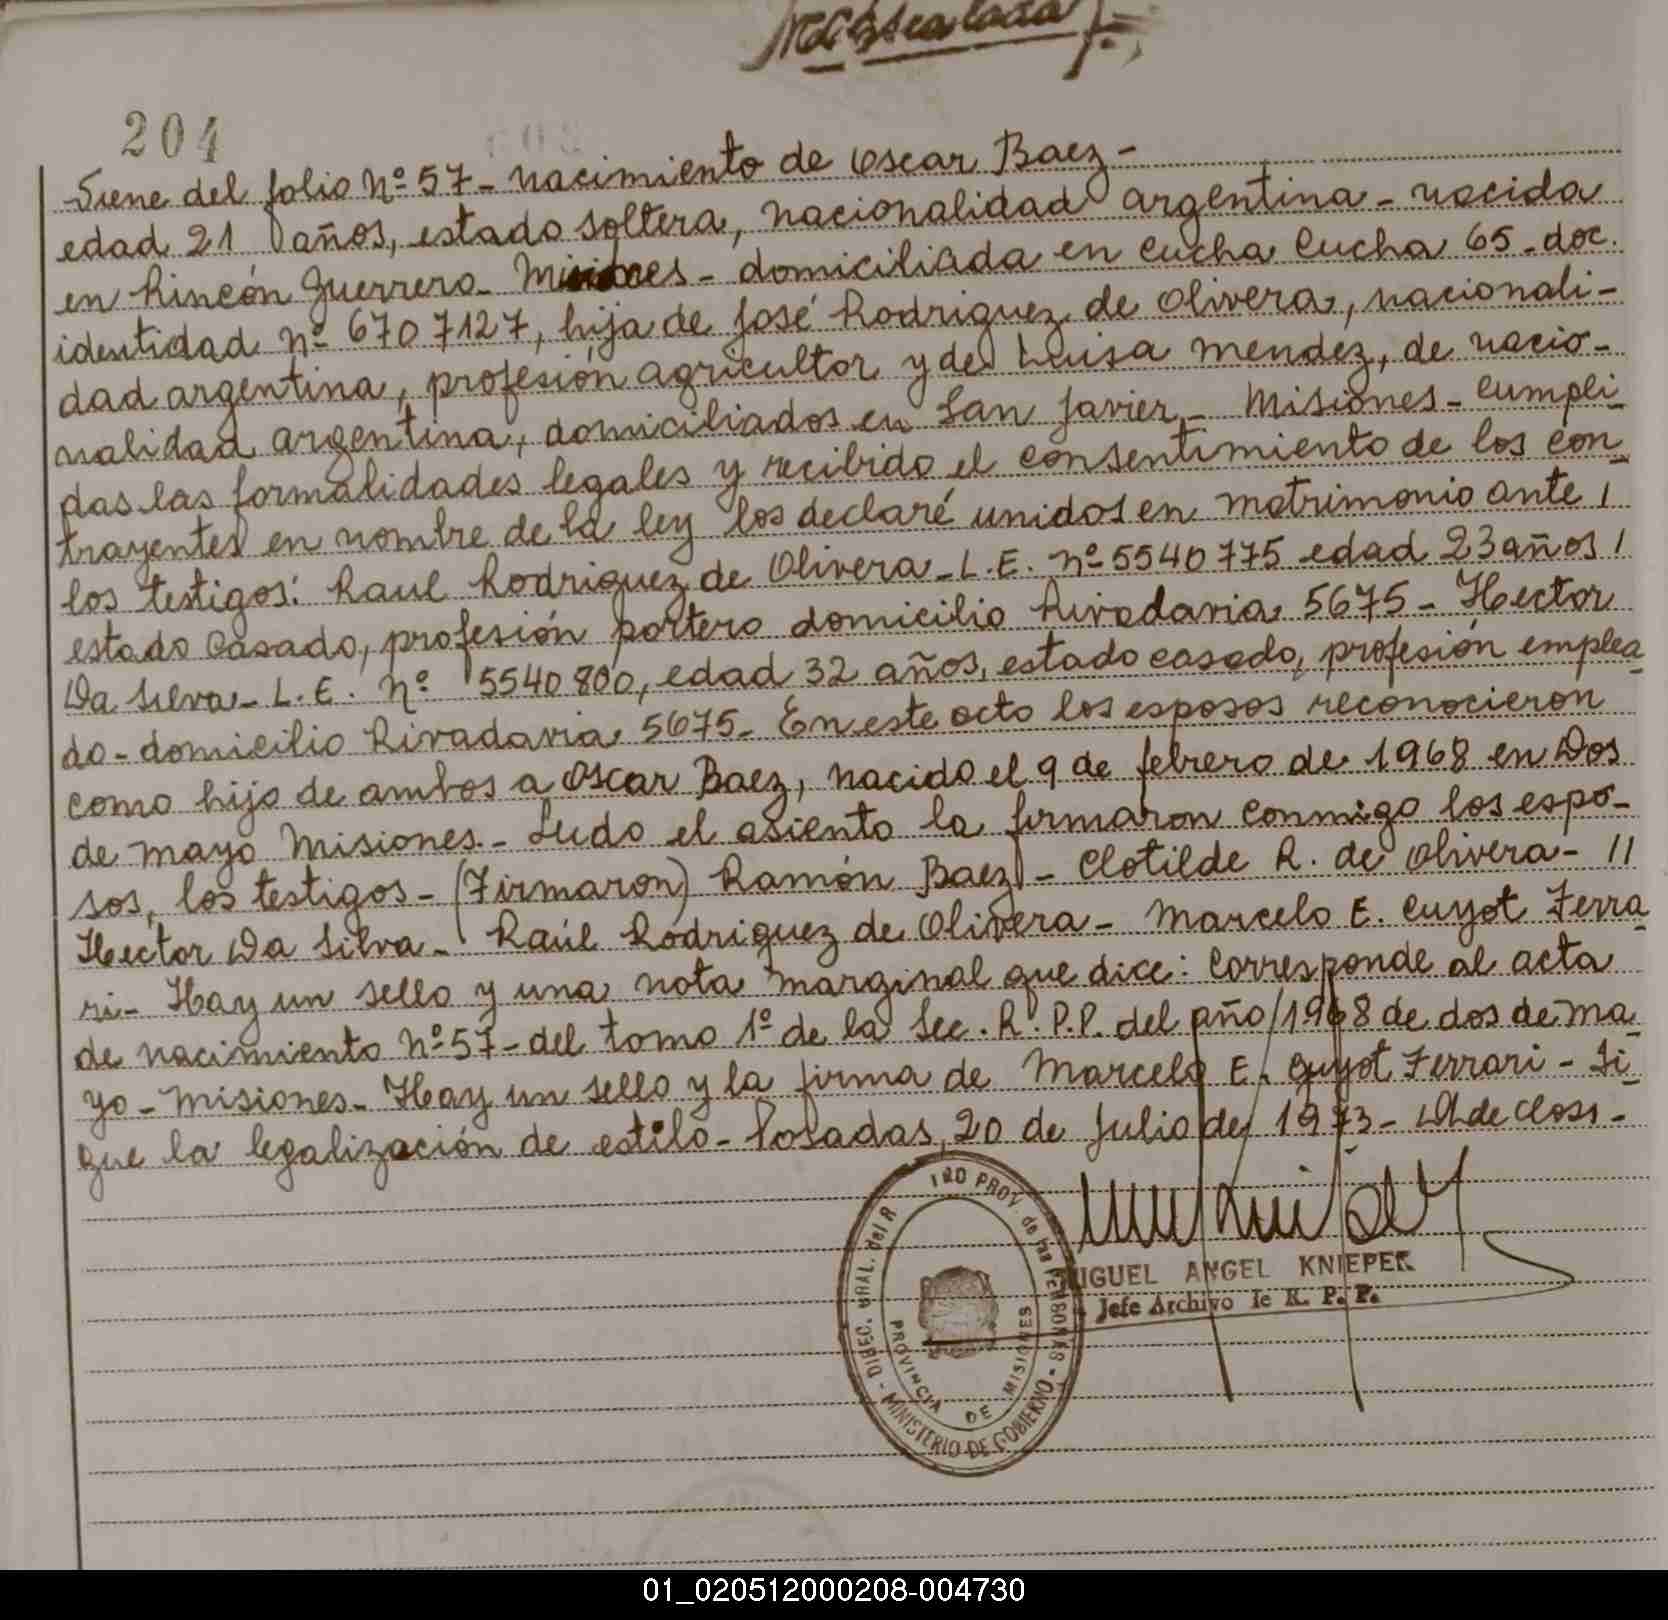 204
Viene del folio Nº 57 - nacimiento de Oscar Baez -
edad 21 años, estado soltera, nacionalidad argentina - nacida
en Rincón Guerrero - Misiones - domiciliada en Cucha Cucha 65 - doc.
identidad nº 6707127, hija de José Rodriguez de Olivera, nacionali-
dad argentina, profesión agricultor y de Luisa Mendez, de nacio-
nalidad argentina, domiciliados en San Javier - Misiones - Cumpli-
das las formalidades legales y recibido el consentimiento de los con-
trayentes en nombre de la ley los declaré unidos en matrimonio ante /
los testigos: Raul Rodriguez de Olivera - L.E. nº 5540775 edad 23 años /
estado casado, profesión portero domicilio Rivadavia 5675 - Hector
Da Silva - L.E. Nº 5540800, edad 32 años, estado casado, profesión emplea-
do - domicilio Rivadavia 5675 - En este acto los esposos reconocieron
como hijo de ambos a Oscar Baez, nacido el 9 de febrero de 1968 en Dos
de mayo Misiones - Leido el asiento la firmaron conmigo los espo-
sos, los testigos - (Firmaron) Ramón Baez - Clotilde R. de Olivera - //
Hector Da Silva - Raúl Rodriguez de Olivera - Marcelo E. Guyot Ferra-
ri - Hay un sello y una nota marginal que dice: Corresponde al acta
de nacimiento Nº 57 - del tomo 1º de la Sec. R.P.P. del año/1968 de dos de Ma-
yo - Misiones - Hay un sello y la firma de Marcelo E. Guyot Ferrari - Si-
gue la legalización de estilo - Posadas, 20 de Julio de 1973 -
MIGUEL ANGEL KNIEPER
Jefe Archivo R. P. P.
PROV. de las PERSONAS - MINISTERIO DE GOBIERNO - DIREC. GRAL. del R
PROVINCIA DE MISIONES
01_020512000208-004730